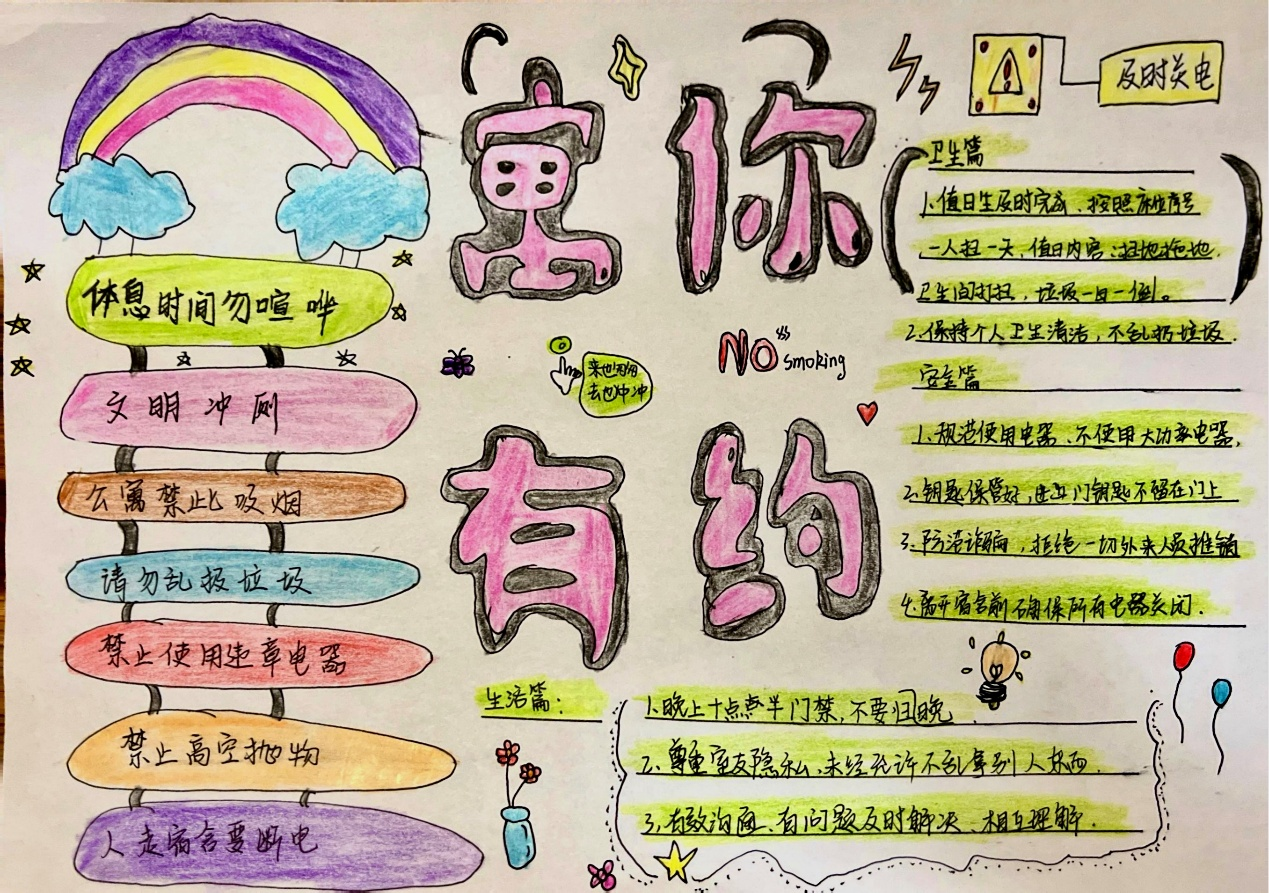 寓你
有约
及时关电
体息时间勿喧哗
文明冲厕
公寓禁止吸烟
请勿乱扔垃圾
禁止使用违章电器
禁止高空抛物
人走宿舍要断电
来也匆匆
去也冲冲
NO smoking
卫生篇
1.值日生及时完成、按照床位序号
一人扫一天,值日内容:扫地拖地,
卫生间打扫,垃圾一日一倒。
2.保持个人卫生清洁,不乱扔垃圾.
安全篇
1.规范使用电器、不使用大功率电器,
2.钥匙保管好,进门钥匙不留在门上
3.防范诈骗,拒绝一切外来人员推销
4.离开宿舍前确保所有电器关闭.
生活篇:
1.晚上十点半门禁,不要归晚
2.尊重室友隐私、未经允许不乱拿别人东西.
3.有效沟通、有问题及时解决、相互理解.